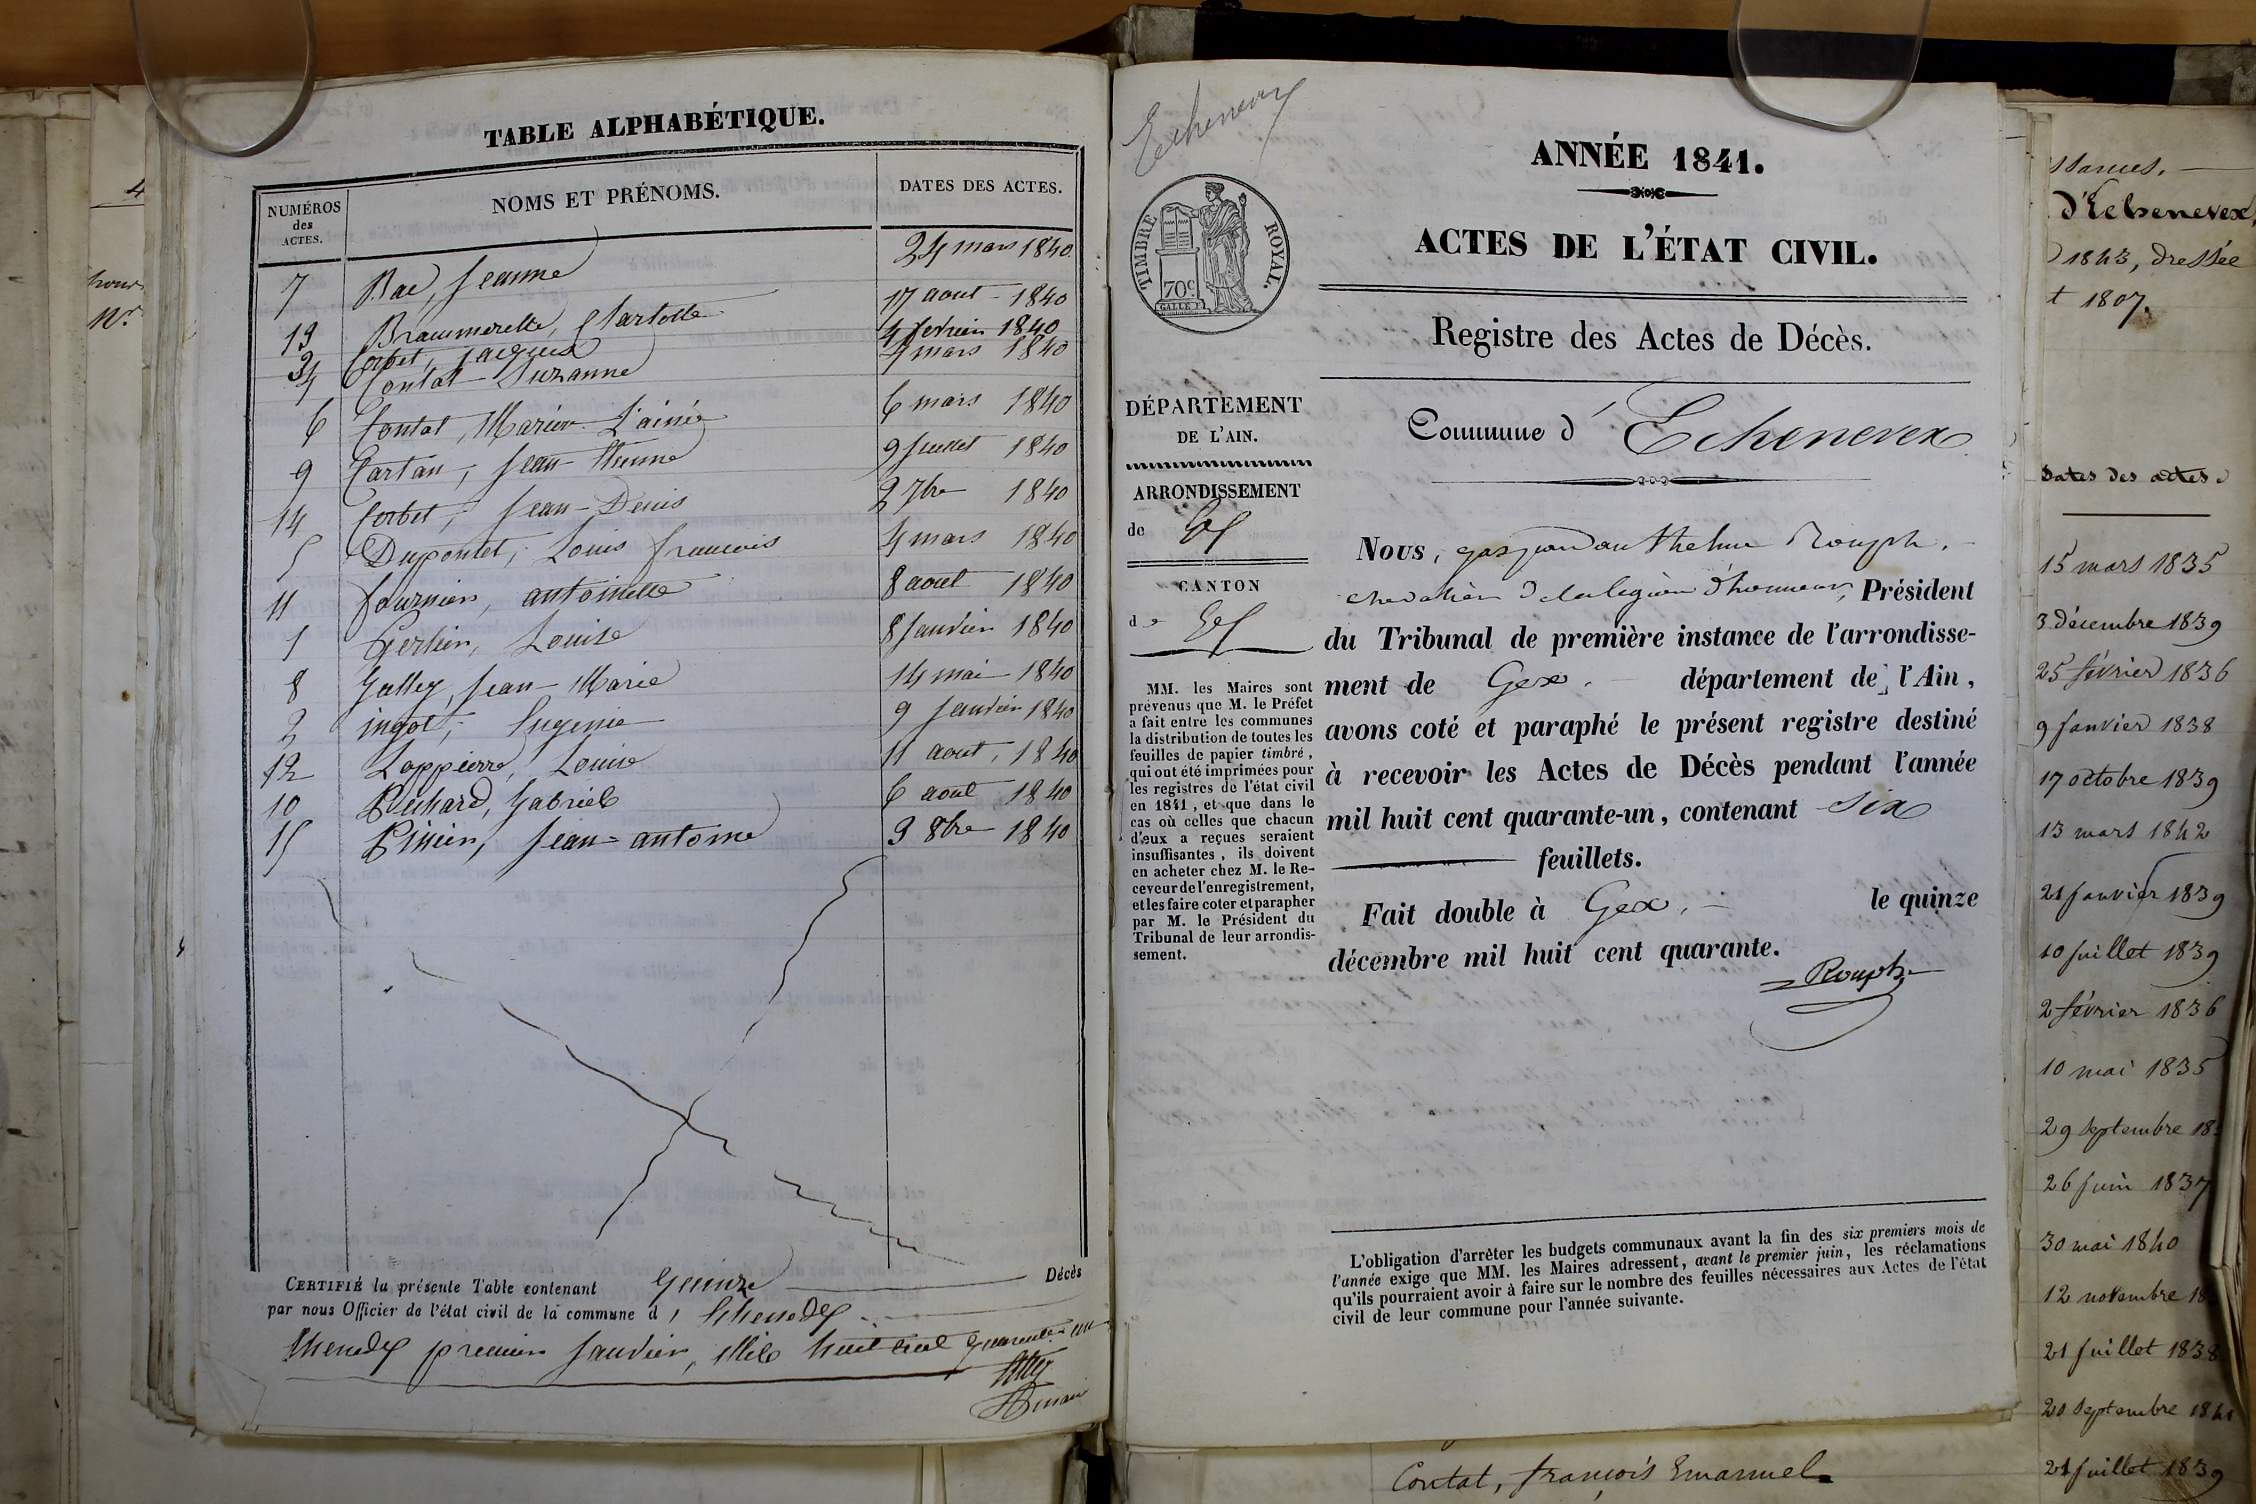 TABLE ALPHABÉTIQUE.
NUMÉROS des ACTES. NOMS ET PRÉNOMS. DATES DES ACTES.
7 Bac, Jeanne 24 mars 1840
13 Charlotte 17 aout 1840
3 Corbet, Jacques 4 fevrier 1840
4 Contat Suzanne 4 mars 1840
6 Contat, L'ainée 6 mars 1840
9 Cartan, Jean 9 Juillet 1840
14 Corbet, Jean-Denis 2 7bre 1840
5 Dupontet, Louis francois 4 mars 1840
11 fournier, antoinette 8 aout 1840
1 Louise 8 Janvier 1840
8 Jean-Marie 14 mai 1840
2 ingot, Eugenie 9 Janvier 1840
12 Lappierre, Louise 11 aout, 1840
10 Gabriel 6 aout 1840
15 Jean-antoine 9 8bre 1840
CERTIFIÉ la présente Table contenant Quinze Décès
par nous Officier de l'état civil de la commune d'
premier Janvier, Mil huit cent quarante un
Echenevex
TIMBRE ROYAL.
70c
ANNÉE 1841.
ACTES DE L'ÉTAT CIVIL.
Registre des Actes de Décès.
Commune d'Echenevex
DÉPARTEMENT
DE L'AIN.
ARRONDISSEMENT
de Gex
CANTON
de Gex
MM. les Maires sont
prévenus que M. le Préfet
a fait entre les communes
la distribution de toutes les
feuilles de papier timbré,
qui ont été imprimées pour
les registres de l'état civil
en 1841, et que dans le
cas où celles que chacun
d'eux a reçues seraient
insuffisantes, ils doivent
en acheter chez M. le Re-
ceveur de l'enregistrement,
et les faire coter et parapher
par M. le Président du
Tribunal de leur arrondis-
sement.
Nous, gaspard anthelme Rouph,
chevalier de la legion d'honneur, Président
du Tribunal de première instance de l'arrondisse-
ment de Gex. département de l'Ain,
avons coté et paraphé le présent registre destiné
à recevoir les Actes de Décès pendant l'année
mil huit cent quarante-un, contenant six
feuillets.
Fait double à Gex, le quinze
décembre mil huit cent quarante.
Rouph
L'obligation d'arrêter les budgets communaux avant la fin des six premiers mois de
l'année exige que MM. les Maires adressent, avant le premier juin, les réclamations
qu'ils pourraient avoir à faire sur le nombre des feuilles nécessaires aux Actes de l'état
civil de leur commune pour l'année suivante.
Contat, françois Emanuel
d'Echenevex
1843, dressée
1807.
Dates des actes
15 mars 1835
3 décembre 1839
25 février 1836
9 Janvier 1838
17 octobre 1839
13 mars 1842
21 Janvier 1839
10 Juillet 1839
2 février 1836
10 mai 1835
29 septembre 18
26 Juin 1837
30 mai 1840
12 novembre 18
21 Juillet 1838
20 septembre 1841
21 Juillet 1839